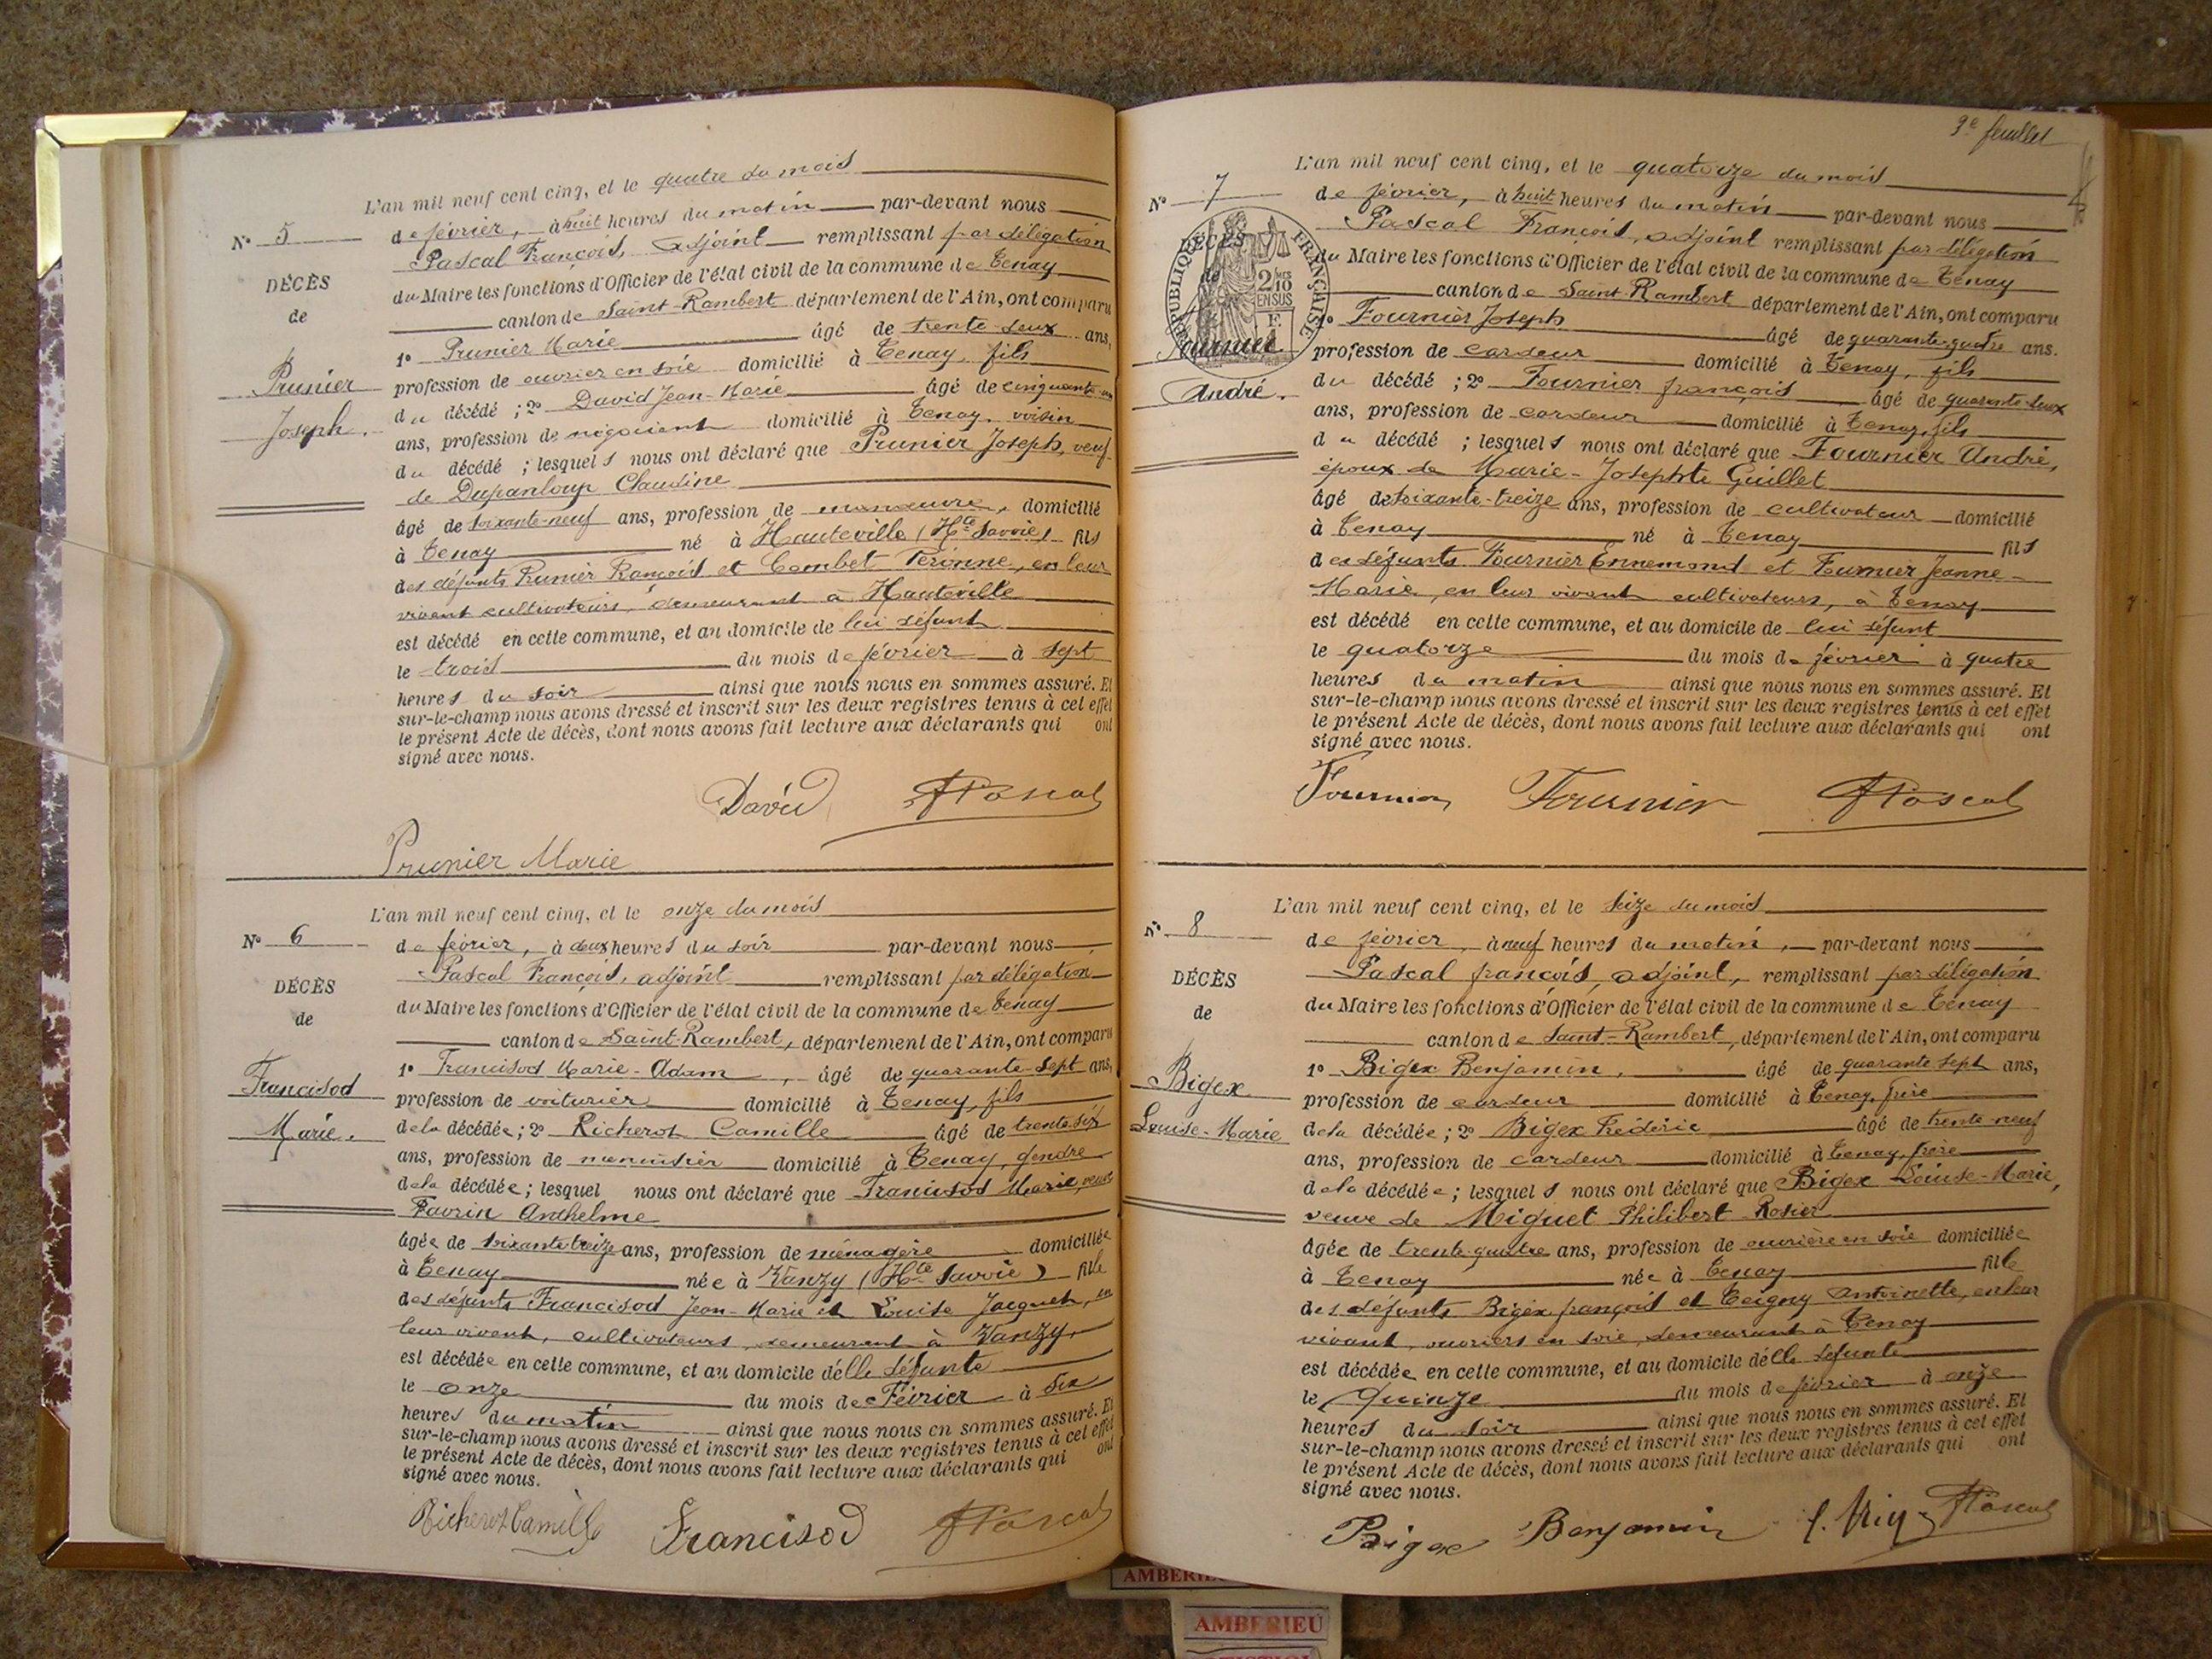 L'an mil neuf cent cinq, et le quatre du mois
N° 5
de février, à huit heures du matin par-devant nous
Pascal François, adjoint remplissant par délégation
DÉCÈS
de
Prunier
Joseph.
du Maire les fonctions d'Officier de l'état civil de la commune de Tenay
canton de Saint-Rambert département de l'Ain, ont comparu
1° Prunier Marie âgé de trente-deux ans,
profession de ouvrier en soie domicilié à Tenay, fils
du décédé ; 2° David Jean-Marie âgé de cinquante-un
ans, profession de négociant domicilié à Tenay, voisin
du décédé ; lesquels nous ont déclaré que Prunier Joseph, veuf
de Dupanloup Claudine
âgé de soixante-neuf ans, profession de manœuvre, domicilié
à Tenay né à Hauteville (Hte Savoie) fils
des défunts Prunier François et Combet Péronne, en leur
vivant cultivateurs, demeurant à Hauteville
est décédé en cette commune, et au domicile de lui défunt
le trois du mois de février à sept
heures du soir ainsi que nous nous en sommes assuré. Et
sur-le-champ nous avons dressé et inscrit sur les deux registres tenus à cet effet
le présent Acte de décès, dont nous avons fait lecture aux déclarants qui ont
signé avec nous.
David FPascal
Prunier Marie
L'an mil neuf cent cinq, et le onze du mois
N° 6
de février, à deux heures du soir par-devant nous
Pascal François, adjoint remplissant par délégation
DÉCÈS
de
Francisod
Marie.
du Maire les fonctions d'Officier de l'état civil de la commune de Tenay
canton de Saint-Rambert, département de l'Ain, ont comparu
1° Francisod Marie-Adam, âgé de quarante-sept ans,
profession de voiturier domicilié à Tenay, fils
de la décédée ; 2° Richerot Camille âgé de trente-six
ans, profession de menuisier domicilié à Tenay, gendre
de la décédée ; lesquel nous ont déclaré que Francisod Marie, veuve
Favrin Anthelme
âgée de soixante-treize ans, profession de ménagère domiciliée
à Tenay née à Vanzy (Hte Savoie) fille
des défunts Francisod Jean-Marie et Louise Jacquet, en
leur vivant, cultivateurs, demeurant à Vanzy,
est décédée en cette commune, et au domicile d'elle défunte
le onze du mois de Février à six
heures du matin ainsi que nous nous en sommes assuré. Et
sur-le-champ nous avons dressé et inscrit sur les deux registres tenus à cet effet
le présent Acte de décès, dont nous avons fait lecture aux déclarants qui ont
signé avec nous.
Richerot Camille Francisod FPascal
9e feuillet
L'an mil neuf cent cinq, et le quatorze du mois
N° 7
de février, à huit heures du matin par-devant nous
Pascal François, adjoint remplissant par délégation
DÉCÈS
de
Fournier
André.
RÉPUBLIQUE FRANÇAISE
2/10 EN SUS
du Maire les fonctions d'Officier de l'état civil de la commune de Tenay
canton de Saint-Rambert département de l'Ain, ont comparu
1° Fournier Joseph âgé de quarante-quatre ans.
profession de cardeur domicilié à Tenay, fils
du décédé ; 2° Fournier françois âgé de quarante-deux
ans, profession de cardeur domicilié à Tenay, fils
du décédé ; lesquels nous ont déclaré que Fournier André,
époux de Marie-Josephte Guillet
âgé de soixante-treize ans, profession de cultivateur domicilié
à Tenay né à Tenay fils
des défunts Fournier Ennemond et Fournier Jeanne-
Marie, en leur vivant cultivateurs, à Tenay
est décédé en cette commune, et au domicile de lui défunt
le quatorze du mois de février à quatre
heures du matin ainsi que nous nous en sommes assuré. Et
sur-le-champ nous avons dressé et inscrit sur les deux registres tenus à cet effet
le présent Acte de décès, dont nous avons fait lecture aux déclarants qui ont
signé avec nous.
Fournier Fournier FPascal
L'an mil neuf cent cinq, et le seize du mois
N° 8
de février, à neuf heures du matin, par-devant nous
Pascal françois, adjoint, remplissant par délégation
DÉCÈS
de
Bigex
Louise-Marie
du Maire les fonctions d'Officier de l'état civil de la commune de Tenay
canton de Saint-Rambert, département de l'Ain, ont comparu
1° Bigex Benjamin, âgé de quarante sept ans,
profession de cardeur domicilié à Tenay, frère
de la décédée ; 2° Bigex Frédéric âgé de trente-neuf
ans, profession de cardeur domicilié à Tenay, frère
de la décédée ; lesquels nous ont déclaré que Bigex Louise-Marie,
veuve de Miguet Philibert Rosier
âgée de trente-quatre ans, profession de ouvrière en soie domiciliée
à Tenay née à Tenay fille
des défunts Bigex françois et Teigny Antoinette, en leur
vivant, ouvriers en soie, demeurant à Tenay
est décédée en cette commune, et au domicile d'elle défunte
le quinze du mois de février à onze
heures du soir ainsi que nous nous en sommes assuré. Et
sur-le-champ nous avons dressé et inscrit sur les deux registres tenus à cet effet
le présent Acte de décès, dont nous avons fait lecture aux déclarants qui ont
signé avec nous.
Bigex Benjamin FPascal
AMBERIEU
AMBERIEU